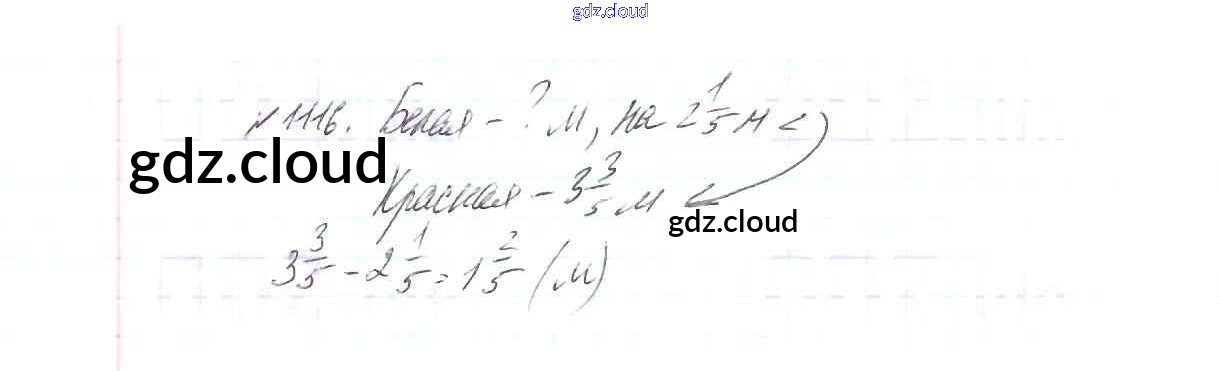 gdz.cloud
№1116. Белая - ? м, на 2 1/5 м <
gdz.cloud
Красная - 3 3/5 м
gdz.cloud
3 3/5 - 2 1/5 = 1 2/5 (м)